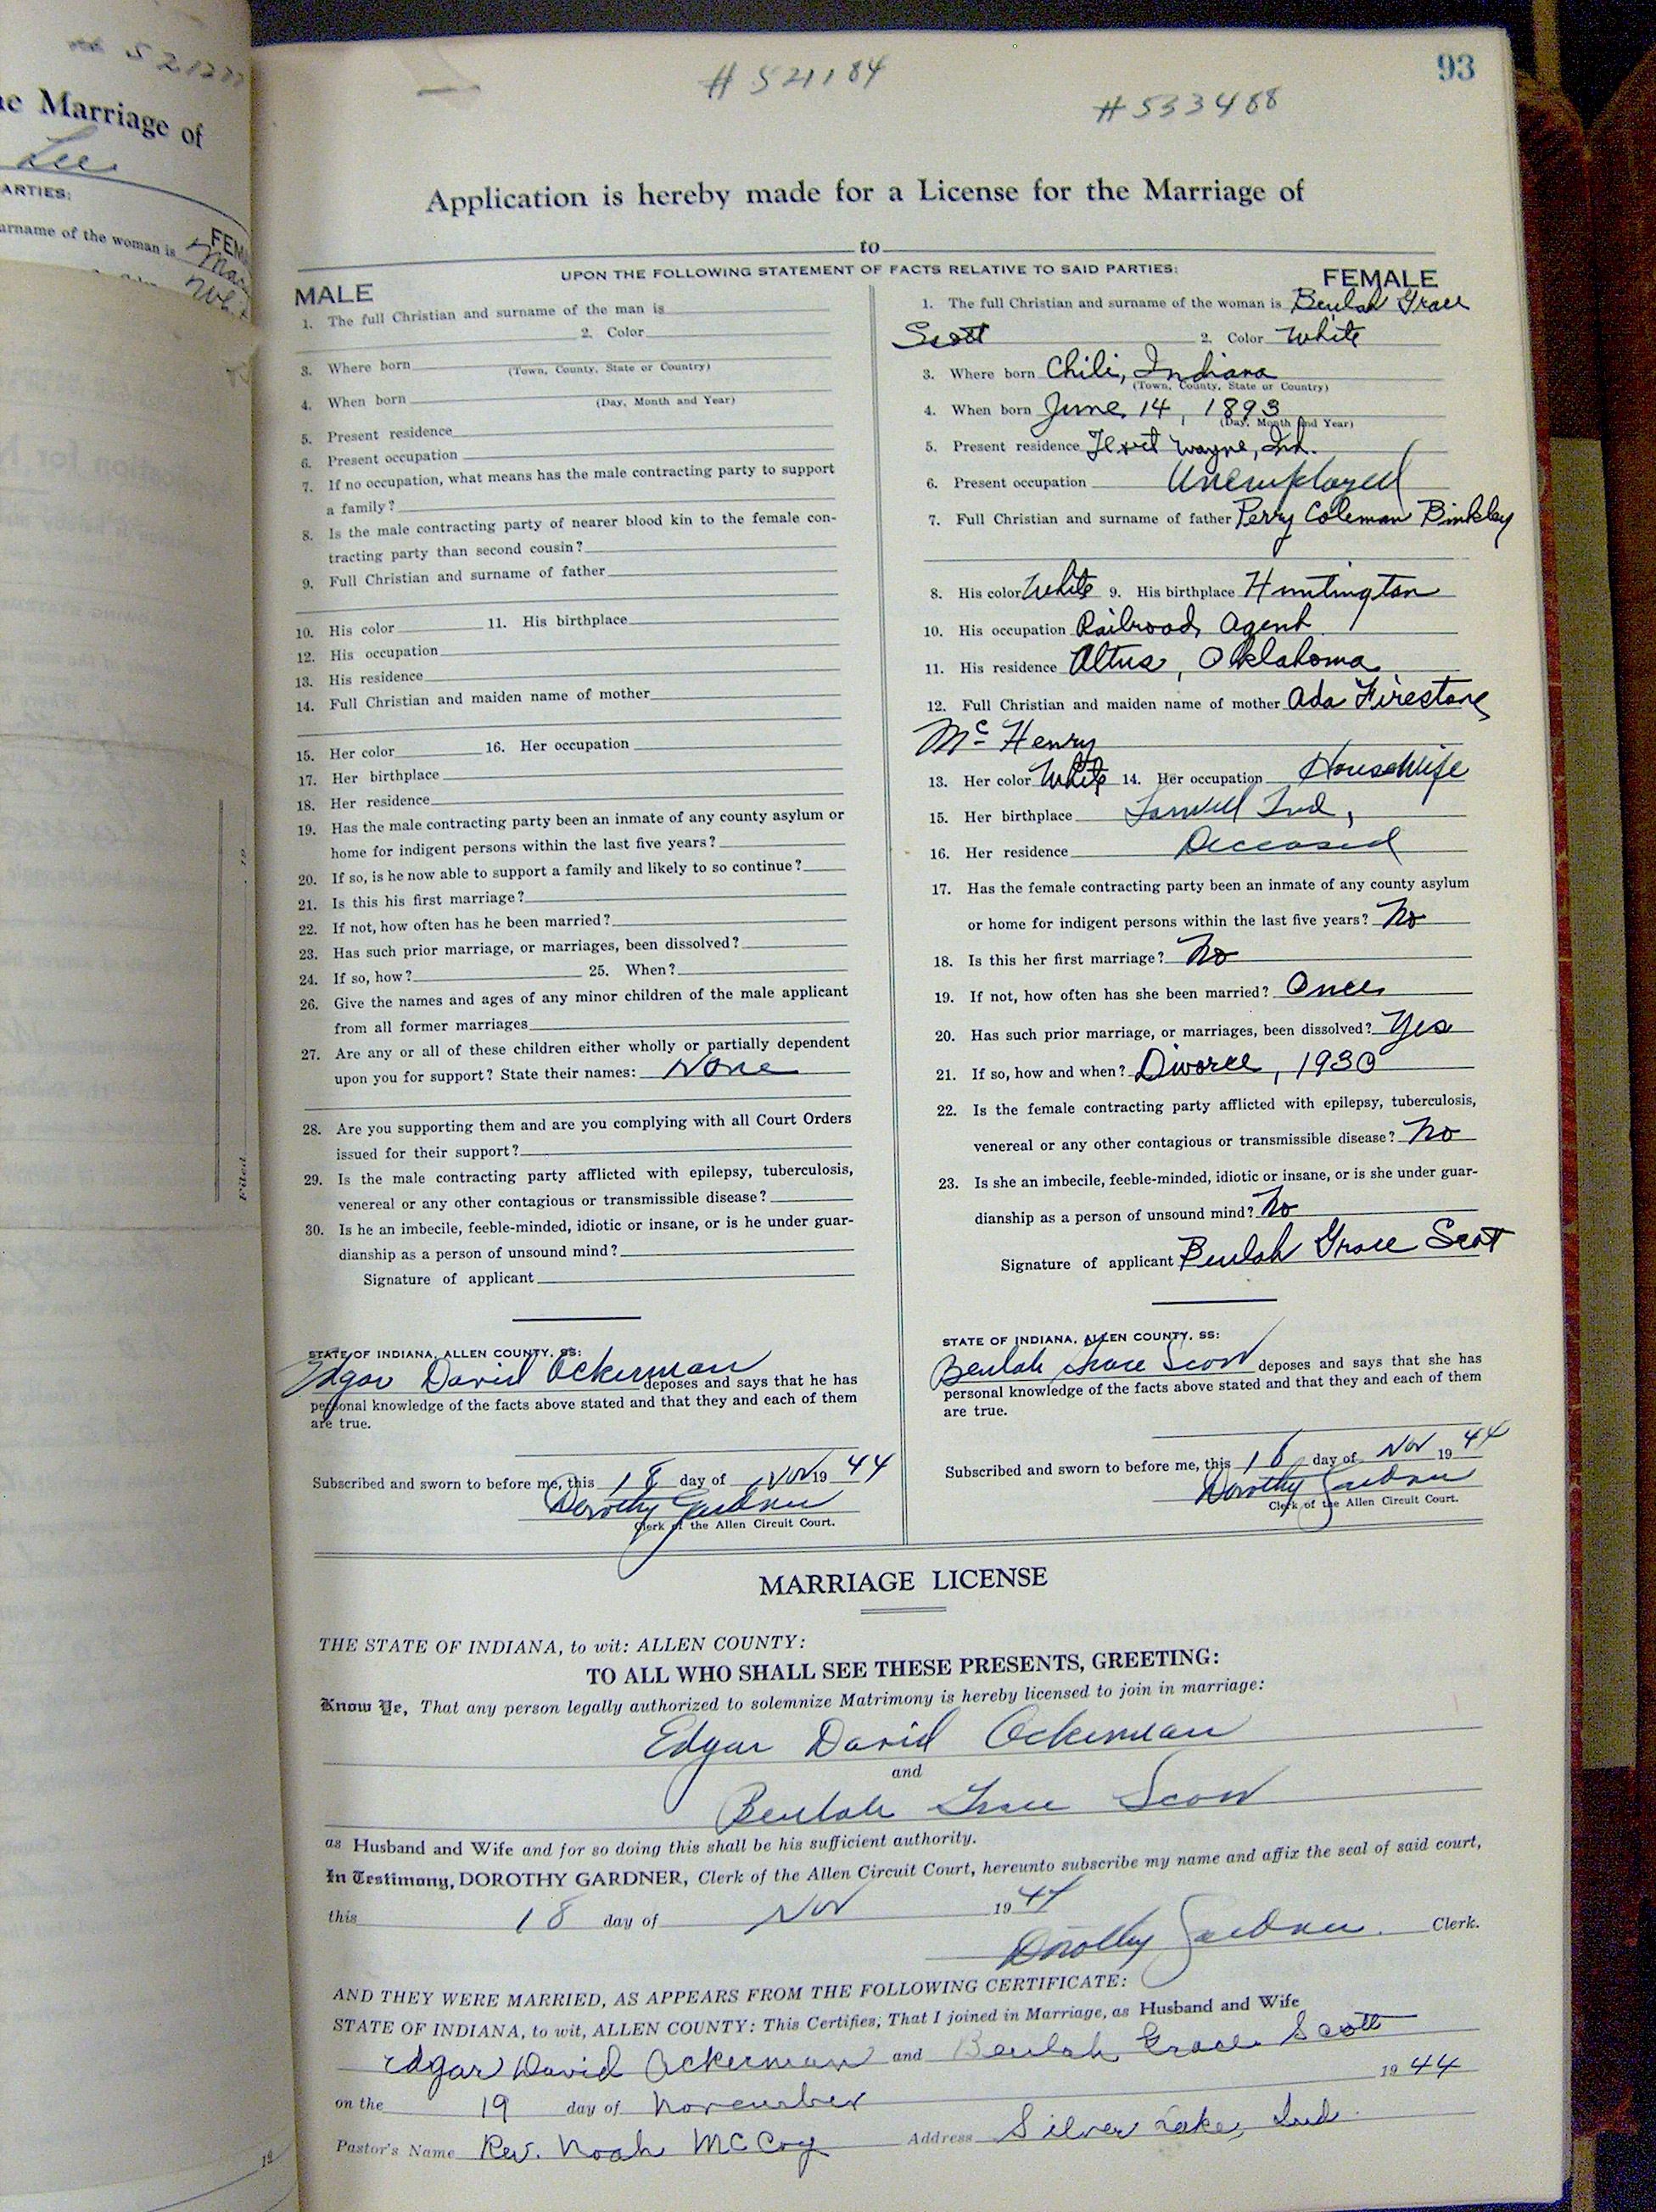 he Marriage of
Lee
ARTIES:
urname of the woman is
FEM
93
# 521184
# 533488
Application is hereby made for a License for the Marriage of
to
UPON THE FOLLOWING STATEMENT OF FACTS RELATIVE TO SAID PARTIES:
MALE
1. The full Christian and surname of the man is
2. Color
3. Where born
(Town, County, State or Country)
4. When born
(Day, Month and Year)
5. Present residence
6. Present occupation
7. If no occupation, what means has the male contracting party to support
a family?
8. Is the male contracting party of nearer blood kin to the female con-
tracting party than second cousin?
9. Full Christian and surname of father
10. His color 11. His birthplace
12. His occupation
13. His residence
14. Full Christian and maiden name of mother
15. Her color 16. Her occupation
17. Her birthplace
18. Her residence
19. Has the male contracting party been an inmate of any county asylum or
home for indigent persons within the last five years?
20. If so, is he now able to support a family and likely to so continue?
21. Is this his first marriage?
22. If not, how often has he been married?
23. Has such prior marriage, or marriages, been dissolved?
24. If so, how? 25. When?
26. Give the names and ages of any minor children of the male applicant
from all former marriages
27. Are any or all of these children either wholly or partially dependent
upon you for support? State their names: None
28. Are you supporting them and are you complying with all Court Orders
issued for their support?
29. Is the male contracting party afflicted with epilepsy, tuberculosis,
venereal or any other contagious or transmissible disease?
30. Is he an imbecile, feeble-minded, idiotic or insane, or is he under guar-
dianship as a person of unsound mind?
Signature of applicant
STATE OF INDIANA, ALLEN COUNTY, SS:
Edgar David Ockerman deposes and says that he has
personal knowledge of the facts above stated and that they and each of them
are true.
Subscribed and sworn to before me, this 18 day of Nov 19 44
Dorothy Gardner
Clerk of the Allen Circuit Court.
FEMALE
1. The full Christian and surname of the woman is Beulah Grace
Scott 2. Color White
3. Where born Chili, Indiana
(Town, County, State or Country)
4. When born June 14, 1893
(Day, Month and Year)
5. Present residence Fort Wayne, Ind.
6. Present occupation Unemployed
7. Full Christian and surname of father Perry Coleman Binkley
8. His color White 9. His birthplace Huntington
10. His occupation Railroad Agent
11. His residence Altus, Oklahoma
12. Full Christian and maiden name of mother Ada Firestone
Mc Henry
13. Her color White 14. Her occupation Housewife
15. Her birthplace Ind,
16. Her residence Deceased
17. Has the female contracting party been an inmate of any county asylum
or home for indigent persons within the last five years? No
18. Is this her first marriage? No
19. If not, how often has she been married? Once
20. Has such prior marriage, or marriages, been dissolved? Yes
21. If so, how and when? Divorce, 1930
22. Is the female contracting party afflicted with epilepsy, tuberculosis,
venereal or any other contagious or transmissible disease? No
23. Is she an imbecile, feeble-minded, idiotic or insane, or is she under guar-
dianship as a person of unsound mind? No
Signature of applicant Beulah Grace Scott
STATE OF INDIANA, ALLEN COUNTY, SS:
Beulah Grace Scott deposes and says that she has
personal knowledge of the facts above stated and that they and each of them
are true.
Subscribed and sworn to before me, this 18 day of Nov 19 44
Dorothy Gardner
Clerk of the Allen Circuit Court.
MARRIAGE LICENSE
THE STATE OF INDIANA, to wit: ALLEN COUNTY:
TO ALL WHO SHALL SEE THESE PRESENTS, GREETING:
Know Ye, That any person legally authorized to solemnize Matrimony is hereby licensed to join in marriage:
Edgar David Ockerman
and
Beulah Grace Scott
as Husband and Wife and for so doing this shall be his sufficient authority.
In Testimony, DOROTHY GARDNER, Clerk of the Allen Circuit Court, hereunto subscribe my name and affix the seal of said court,
this 18 day of Nov 19 44
Dorothy Gardner. Clerk.
AND THEY WERE MARRIED, AS APPEARS FROM THE FOLLOWING CERTIFICATE:
STATE OF INDIANA, to wit, ALLEN COUNTY: This Certifies, That I joined in Marriage, as Husband and Wife
Edgar David Ockerman and Beulah Grace Scott
on the 19 day of November 19 44
Pastor's Name Rev. Noah McCoy Address Silver Lake, Ind.